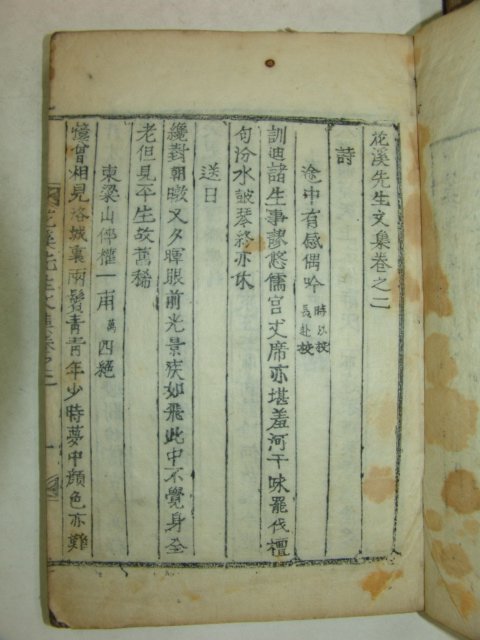 花溪先生文集卷之二
詩
途中有感偶吟 時以校長赴校
訓迪諸生事謬悠儒宮丈席亦堪羞河干咏罷伐檀
句汾水皷琴終亦休
送日
纔對朝暾又夕暉眼前光景疾如飛此中不覺身全
老但見平生故舊稀
東梁山倅權一甫 萬 四絕
憶曾相見 城裏兩鬢青青年少時夢中顔色亦難
花溪先生文集卷之二 一